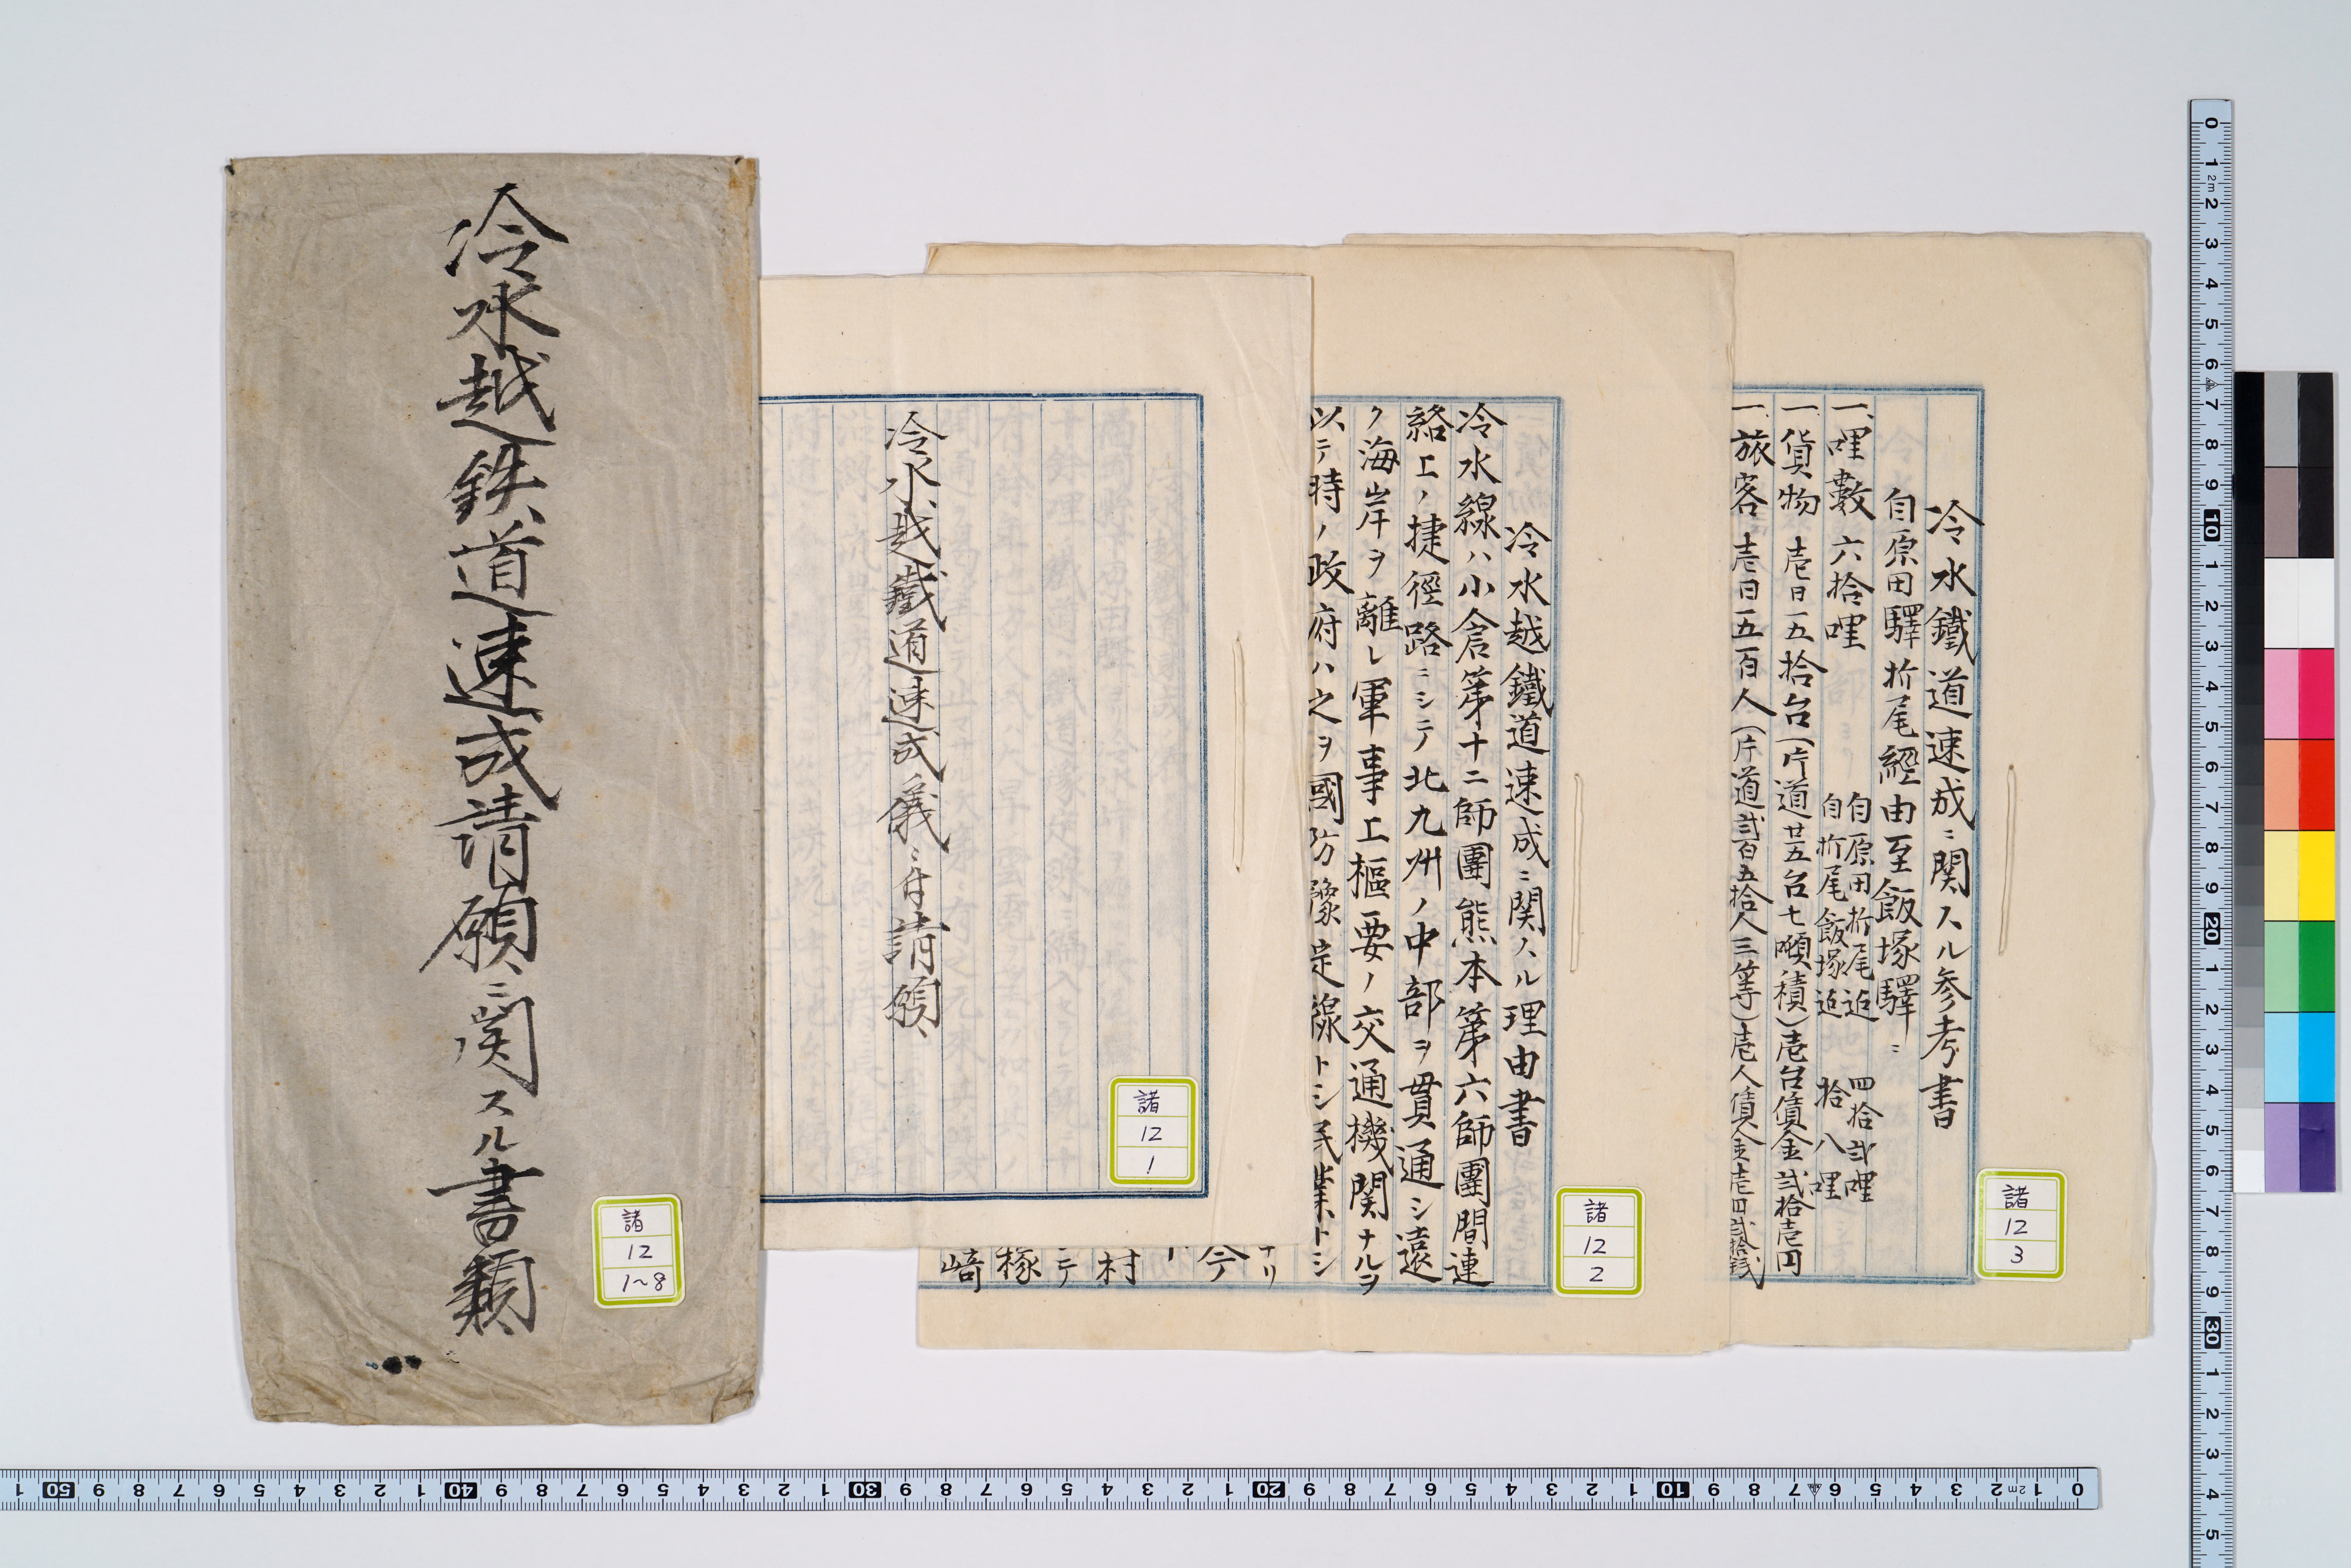 冷水鐵道速成ニ関スル参考書
自原田驛折尾経由至飯塚驛ニ
一、哩數 六拾哩
自原田折尾迄 四拾弐哩
自折尾飯塚迄 拾八哩
一、貨物 壱日一五拾台(片道廿五台七噸積)壱台賃金弐拾壱円
一、旅客 壱日五百人(片道弐百五拾人三等)壱人賃金壱円弐拾銭
諸
12
3
冷水越鐵道速成ニ関スル理由書
冷水線ハ小倉第十二師團熊本第六師團間連
絡上ノ捷徑路ニシテ北九州ノ中部ヲ貫通シ遠
ノ海岸ヲ離レ軍事上樞要ノ交通機関ナルヲ
以テ時ノ政府ハ之ヲ國防豫定線トシ民業トシ
ナリ
今
村
ニテ
椓
崎
諸
12
2
冷水越鐵道速成ノ儀ニ付請願
諸
12
1
冷水越鉄道速成請願ニ関スル書類
諸
12
1~8